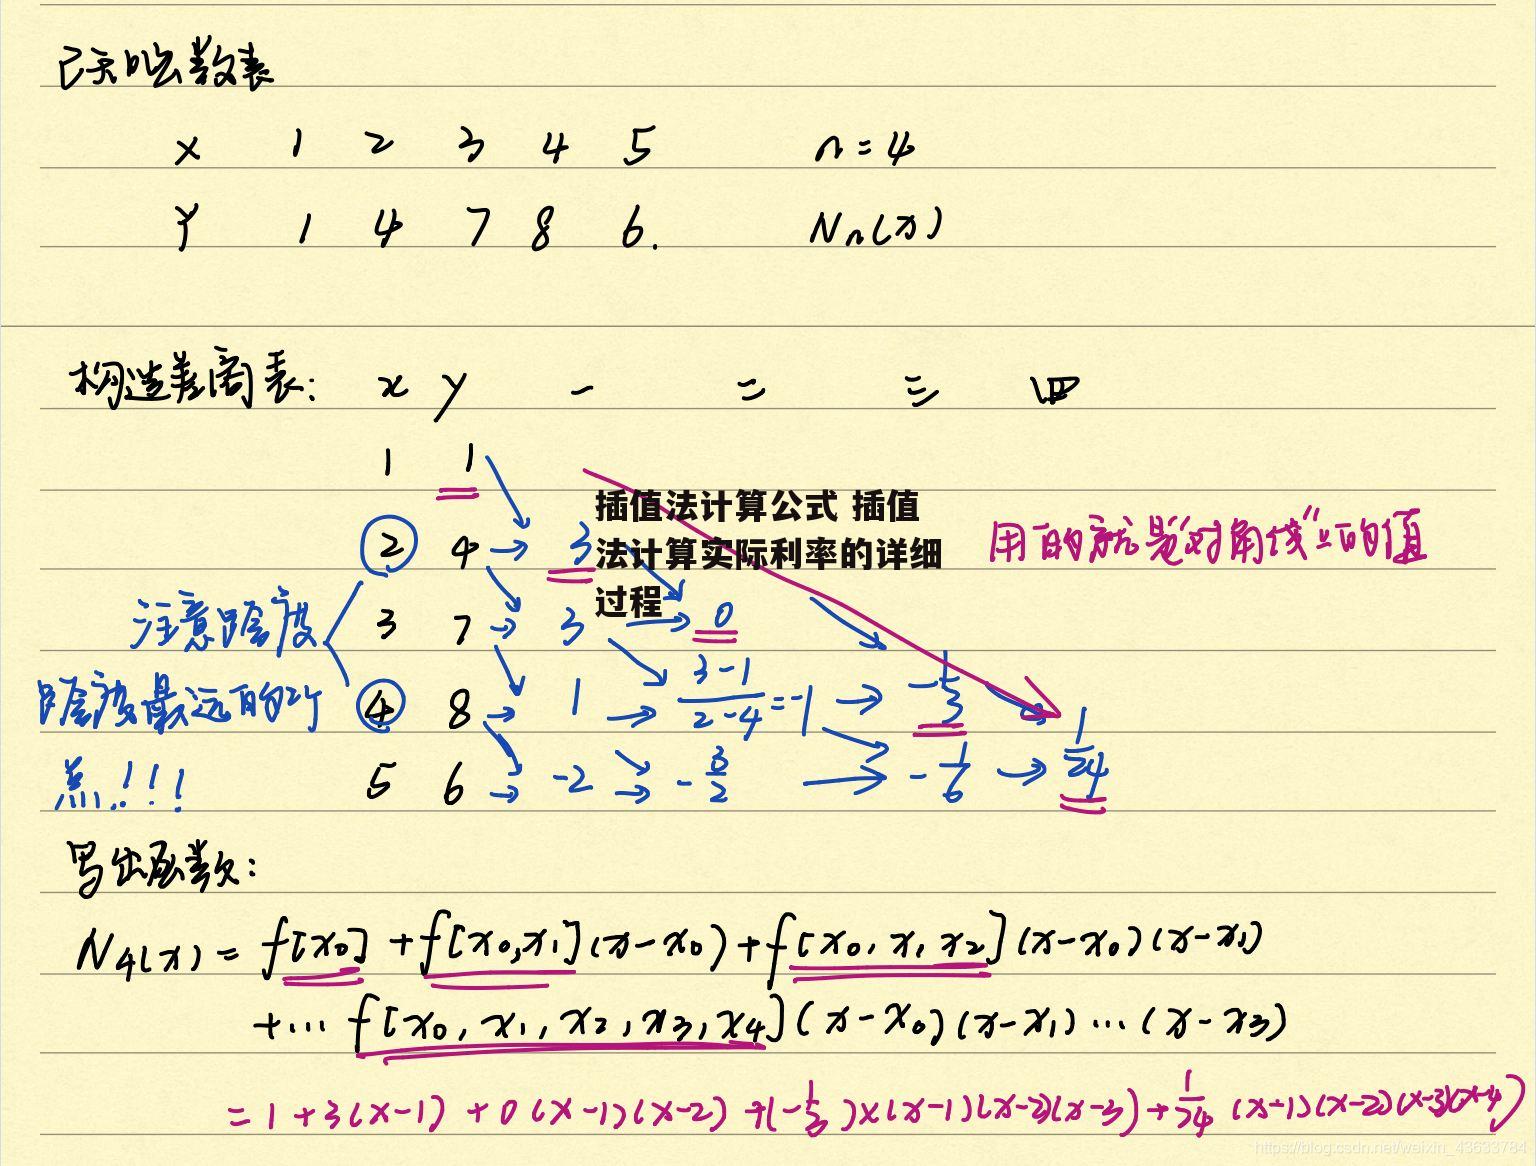 已知函数表
x 1 2 3 4 5 n=4
Y 1 4 7 8 6. Nn(x)
构造差商表: x y 一 二 三 四
1 1
2 4 → 3
3 7 → 3 → 0
4 8 → 1 → (3-1)/(2-4) = -1 → -1/3
5 6 → -2 → -3/2 → -1/6 → 1/24
插值法计算公式 插值
法计算实际利率的详细
过程
用的就是"对角线"上的值
注意跨度
跨度最远的2个
点!!!
写出函数:
N4(x) = f[x0] + f[x0,x1](x-x0) + f[x0,x1,x2](x-x0)(x-x1)
+… f[x0,x1,x2,x3,x4](x-x0)(x-x1)…(x-x3)
= 1 + 3(x-1) + 0(x-1)(x-2) + (-1/3)x(x-1)(x-2)(x-3) + 1/24 (x-1)(x-2)(x-3)(x-4)
https://blog.csdn.net/weixin_43633784